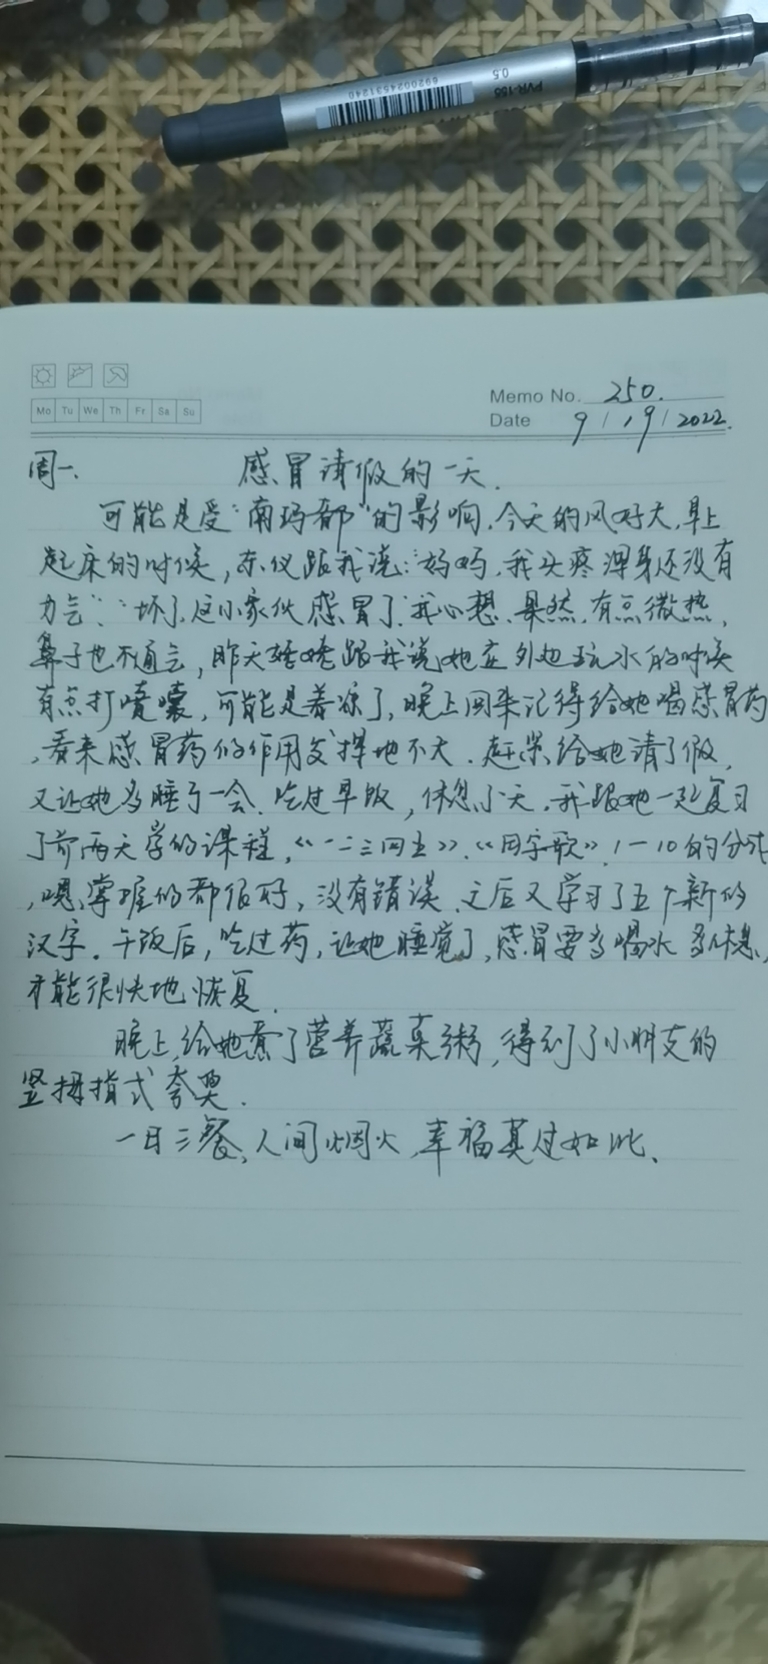 6920024531240
PVR-155
0.5
Memo No. 250.
Mo Tu We Th Fr Sa Su
Date 9 / 19 / 2022.
周一. 感冒请假的一天.
可能是受“南玛都”的影响,今天的风好大,早上
起床的时候,东仪跟我说:“妈妈,我头疼浑身还没有
力气”“坏了,这小家伙感冒了”我心想,果然,有点微热,
鼻子也不通气,昨天姥姥跟我说她在外边玩水的时候
有点打喷嚏,可能是着凉了,晚上回来记得给她喝感冒药
,看来感冒药的作用发挥地不大.赶紧给她请了假,
又让她多睡了一会.吃过早饭,休息小天,我跟她一起复习
了前两天学的课程,《一二三四五》.《田字歌》,1—10的分成
,嗯,掌握的都很好,没有错误.之后又学习了五个新的
汉字.午饭后,吃过药,让她睡觉了,感冒要多喝水 多休息,
才能很快地恢复.
晚上,给她煮了营养蔬菜粥,得到了小朋友的
竖拇指式夸奖.
一日三餐,人间烟火,幸福莫过如此.